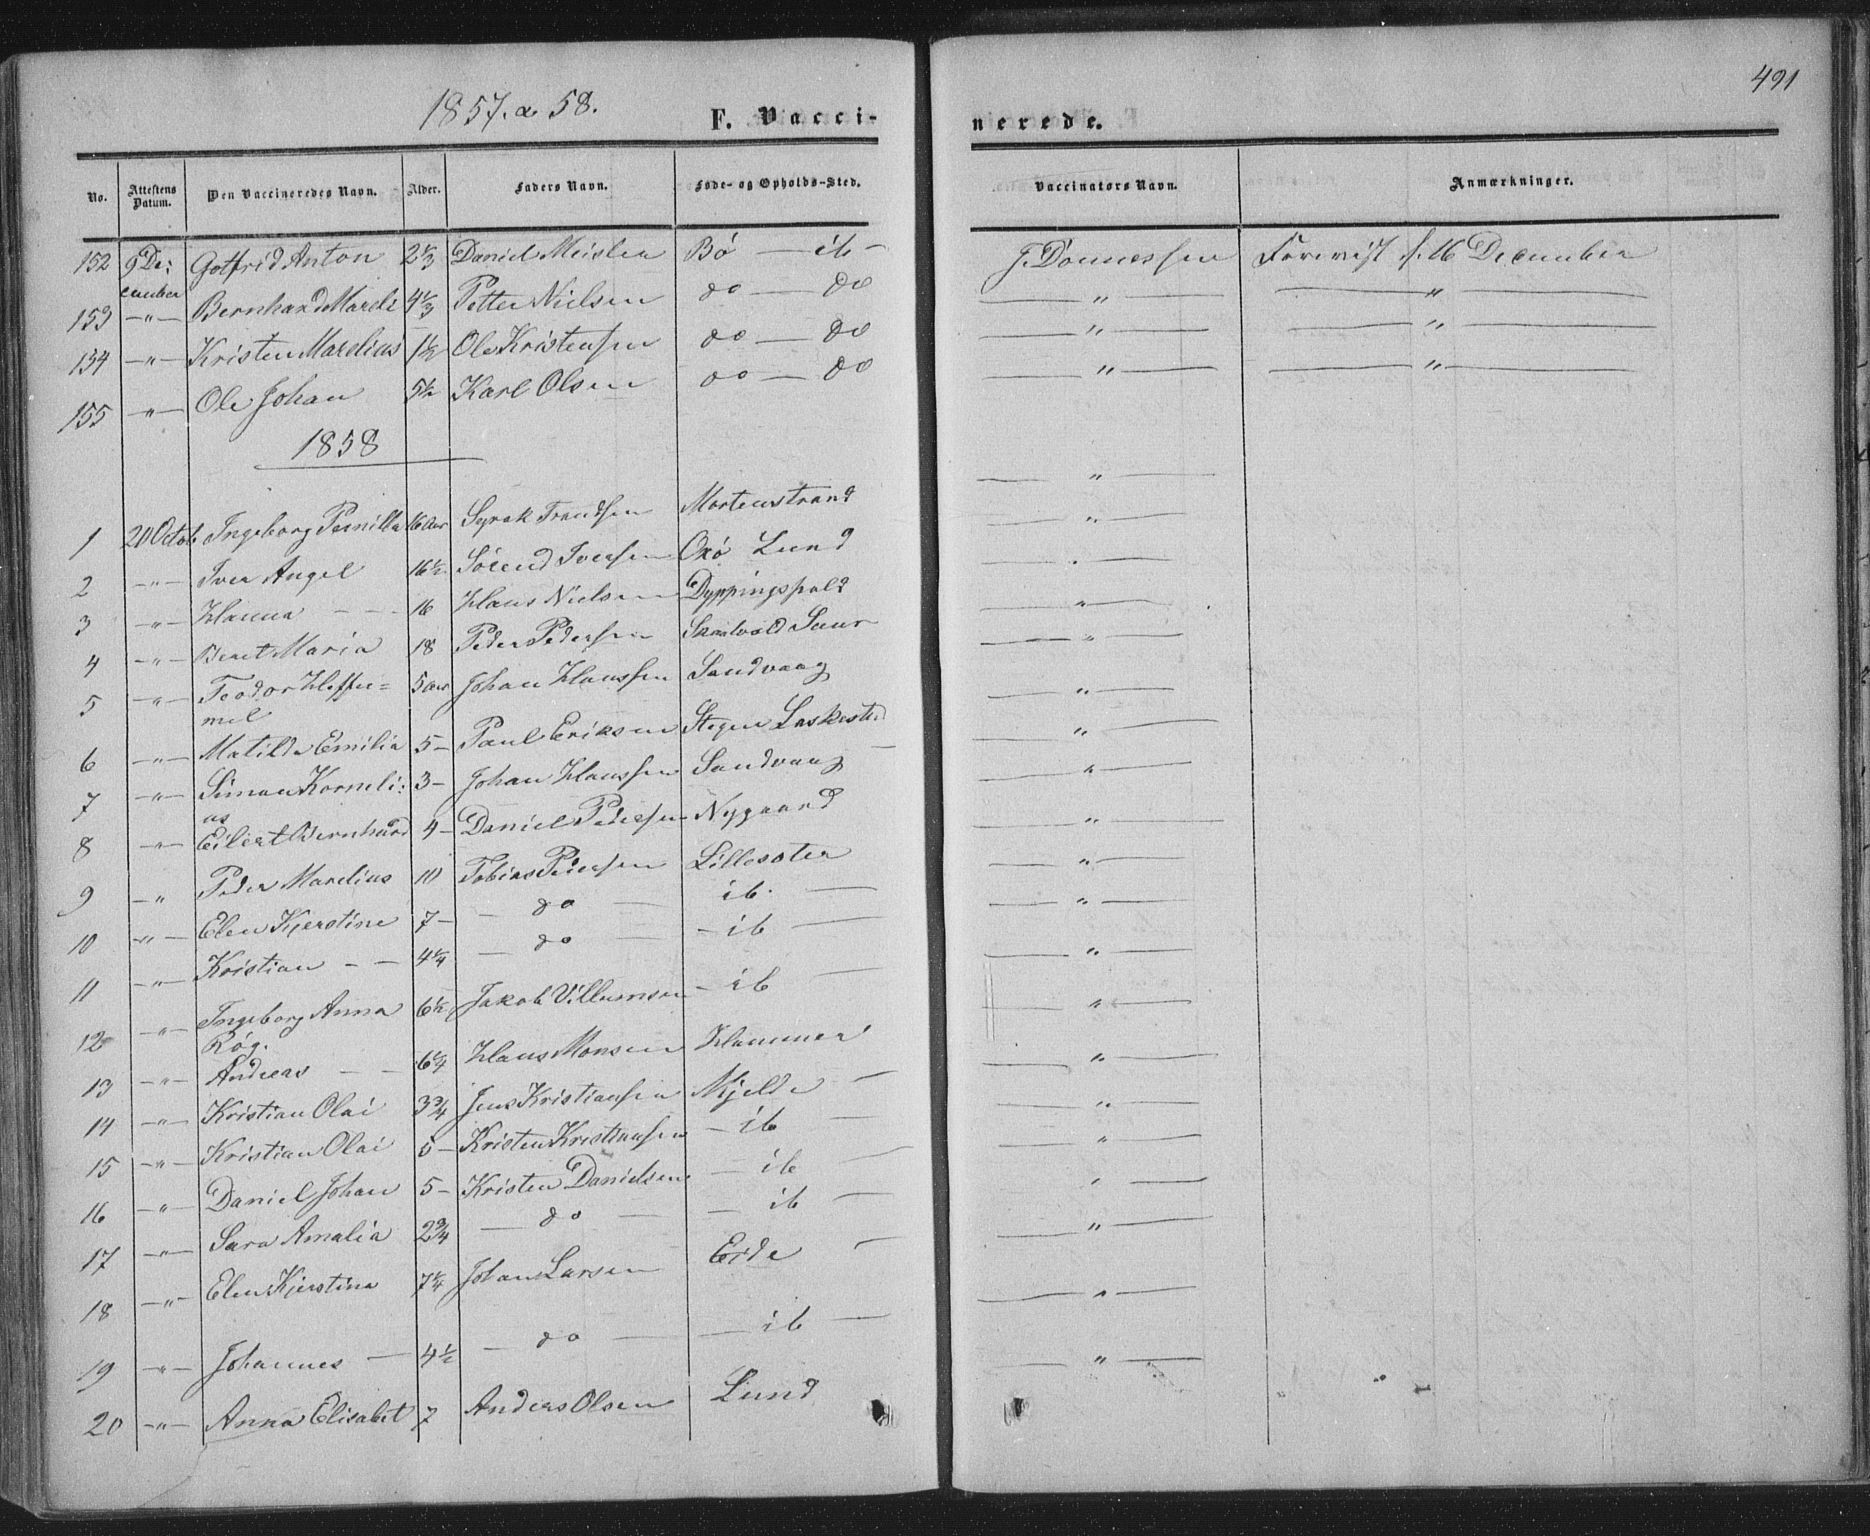 491
1857. & 58.
F. Vacci-
nerede.
No. Attestens Datum. Den Vaccineredes Navn. Alder. Faders Navn. Føde- og Opholds-Sted. Vaccinators Navn. Anmærkninger.
152 9 De: Gotfrid Anton 2 1/3 Daniel Meisler Bø — ib — J. Dønnessen Forevist d. 16 December
cember
153 — " — Bernhard Mareli 4 1/3 Petter Nielsen do — do — " — — " —
154 — " — Kristen Marelius 1 1/2 Ole Kristensen do — do — " — — " —
155 — " — Ole Johan 5 1/2 Karl Olsen do — do — " — — " —
1858
— " —
1 20 Octob Ingeborg Pernilla 16 Aar Syrak Trondsen Mortenstrand — " —
2 — " — Iver Angel 16 1/2 Sørend Iversen Oxø Lund — " —
3 — " — Hanna — — 16 Hans Nielsen Dyppingspold — " —
4 — " — Beret Maria 18 Peder Pedersen Skaalvold — " —
5 — " — Teodor Heffer= 5 Aar Johan Hanssen Sandvaag — " —
mel
6 — " — Matilde Emilia 5 — Paul Eriksen Stegen Laskestad — " —
7 — " — Simon Korneli: 3 — Johan Hanssen Sandvaag — " —
us
8 — " — Eilert Bernhard 4 — Daniel Pedersen Nygaard — " —
9 — " Peder Marelius 10 Tobias Pedersen Lillesøter — " —
10 — " — Elen Kjerstine 7 — — do — ib. — — " —
11 — " — Kristian — — 4 1/4 — do — — ib — — " —
12 — " — Ingeborg Anna 6 1/2 Jakob Villumsen — ib — — " —
Røg.
13 — " — Andreas — — 6 1/4 Hans Monsen Hammer — " —
14 — " — Kristian Olai 3 3/4 Jens Kristiansen Mjelde — — " —
15 — " — Kristian Olai 5 — Kristen Kristiansen — ib — — " —
16 — " — Daniel Johan 5 — Kristen Danielsen — ib — — " —
17 — " — Sara Amalia 2 3/4 — do — — ib — — " —
18 — " — Elen Kjerstina 7 1/4 Johan Larsen Erde — — " —
19 — " — Johannes — 4 1/2 — do — — ib — — " —
20 — " — Anna Elisabet 7 Anders Olsen Lund